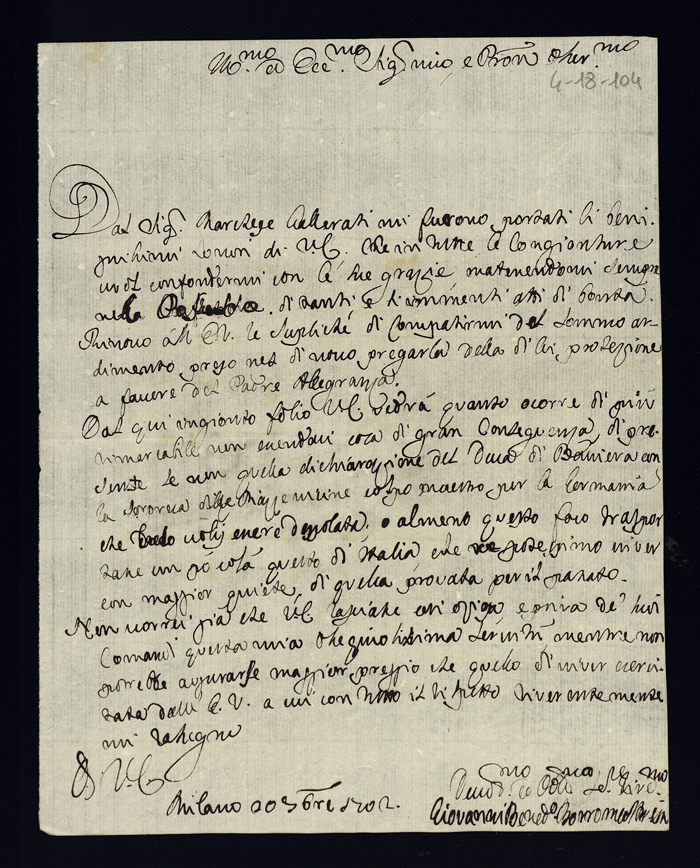 Ill.mo et Ecc.mo Sig.r mio, e Pron Osser.mo
4-18-104
Dal Sig.r Marchese Gallerati mi furono portati li beni-
gnissimi honori di V.E. che in tutte le Congionture
vuol confondermi con le sue grazie matenendomi sempre
nella di tanti e si eminenti atti di bontà.
Rinovo all' E.V. le supliche di Compatirmi del sommo ar-
dimento preso nel di novo pregarla della di lei protezione
a favore del Padre Allegranza.
Dal qui ingionto folio V.E. vedrà quanto ocorre di più
rimarcabile non essendovi cosa di gran Conseguenza di pre-
sente se non quella dichiarazione del Duca di Baviera con
la colpo maestro per la Germania
che desolata, o almeno questo foco traspor-
tare un pò colà questo di Italia che potessimo viver
con maggior quiete, di quella provata per il passato.
Non vorrei già che V.E. lasciasse così oziosa e priva de' suoi
Comandi questa mia ossequiosissima servitù mentre non
potrebbe augurarse maggior preggio che quello di viver eserci-
tata dall E.V. a cui con tutto il rispetto riverentemente
mi rassegno
D V.E.
Milano 20 7bre 1702.
Giovanni Bened.o Borromeo